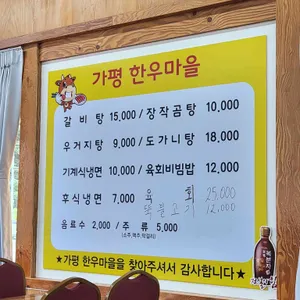 가평 한우마을
갈 비 탕 15,000 / 장작곰탕 10,000
우거지탕 9,000 / 도가니탕 18,000
기계식냉면 10,000 / 육회비빔밥 12,000
후식냉면 7,000 육 회 25,000
뚝불고기 12,000
음료수 2,000 / 주 류 5,000
(소주,맥주,막걸리)
★가평 한우마을을 찾아주셔서 감사합니다★